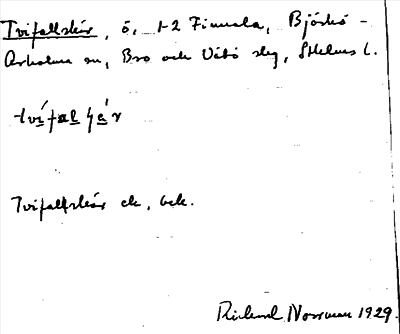 Tvifallskär, ö, 1-2 Finnala, Björkö-
Arholma sn, Bro och Vätö skg, Sthlms l.
tvífalʃár
Tvifallskär ek, bek.
Rickard Norrman 1929.